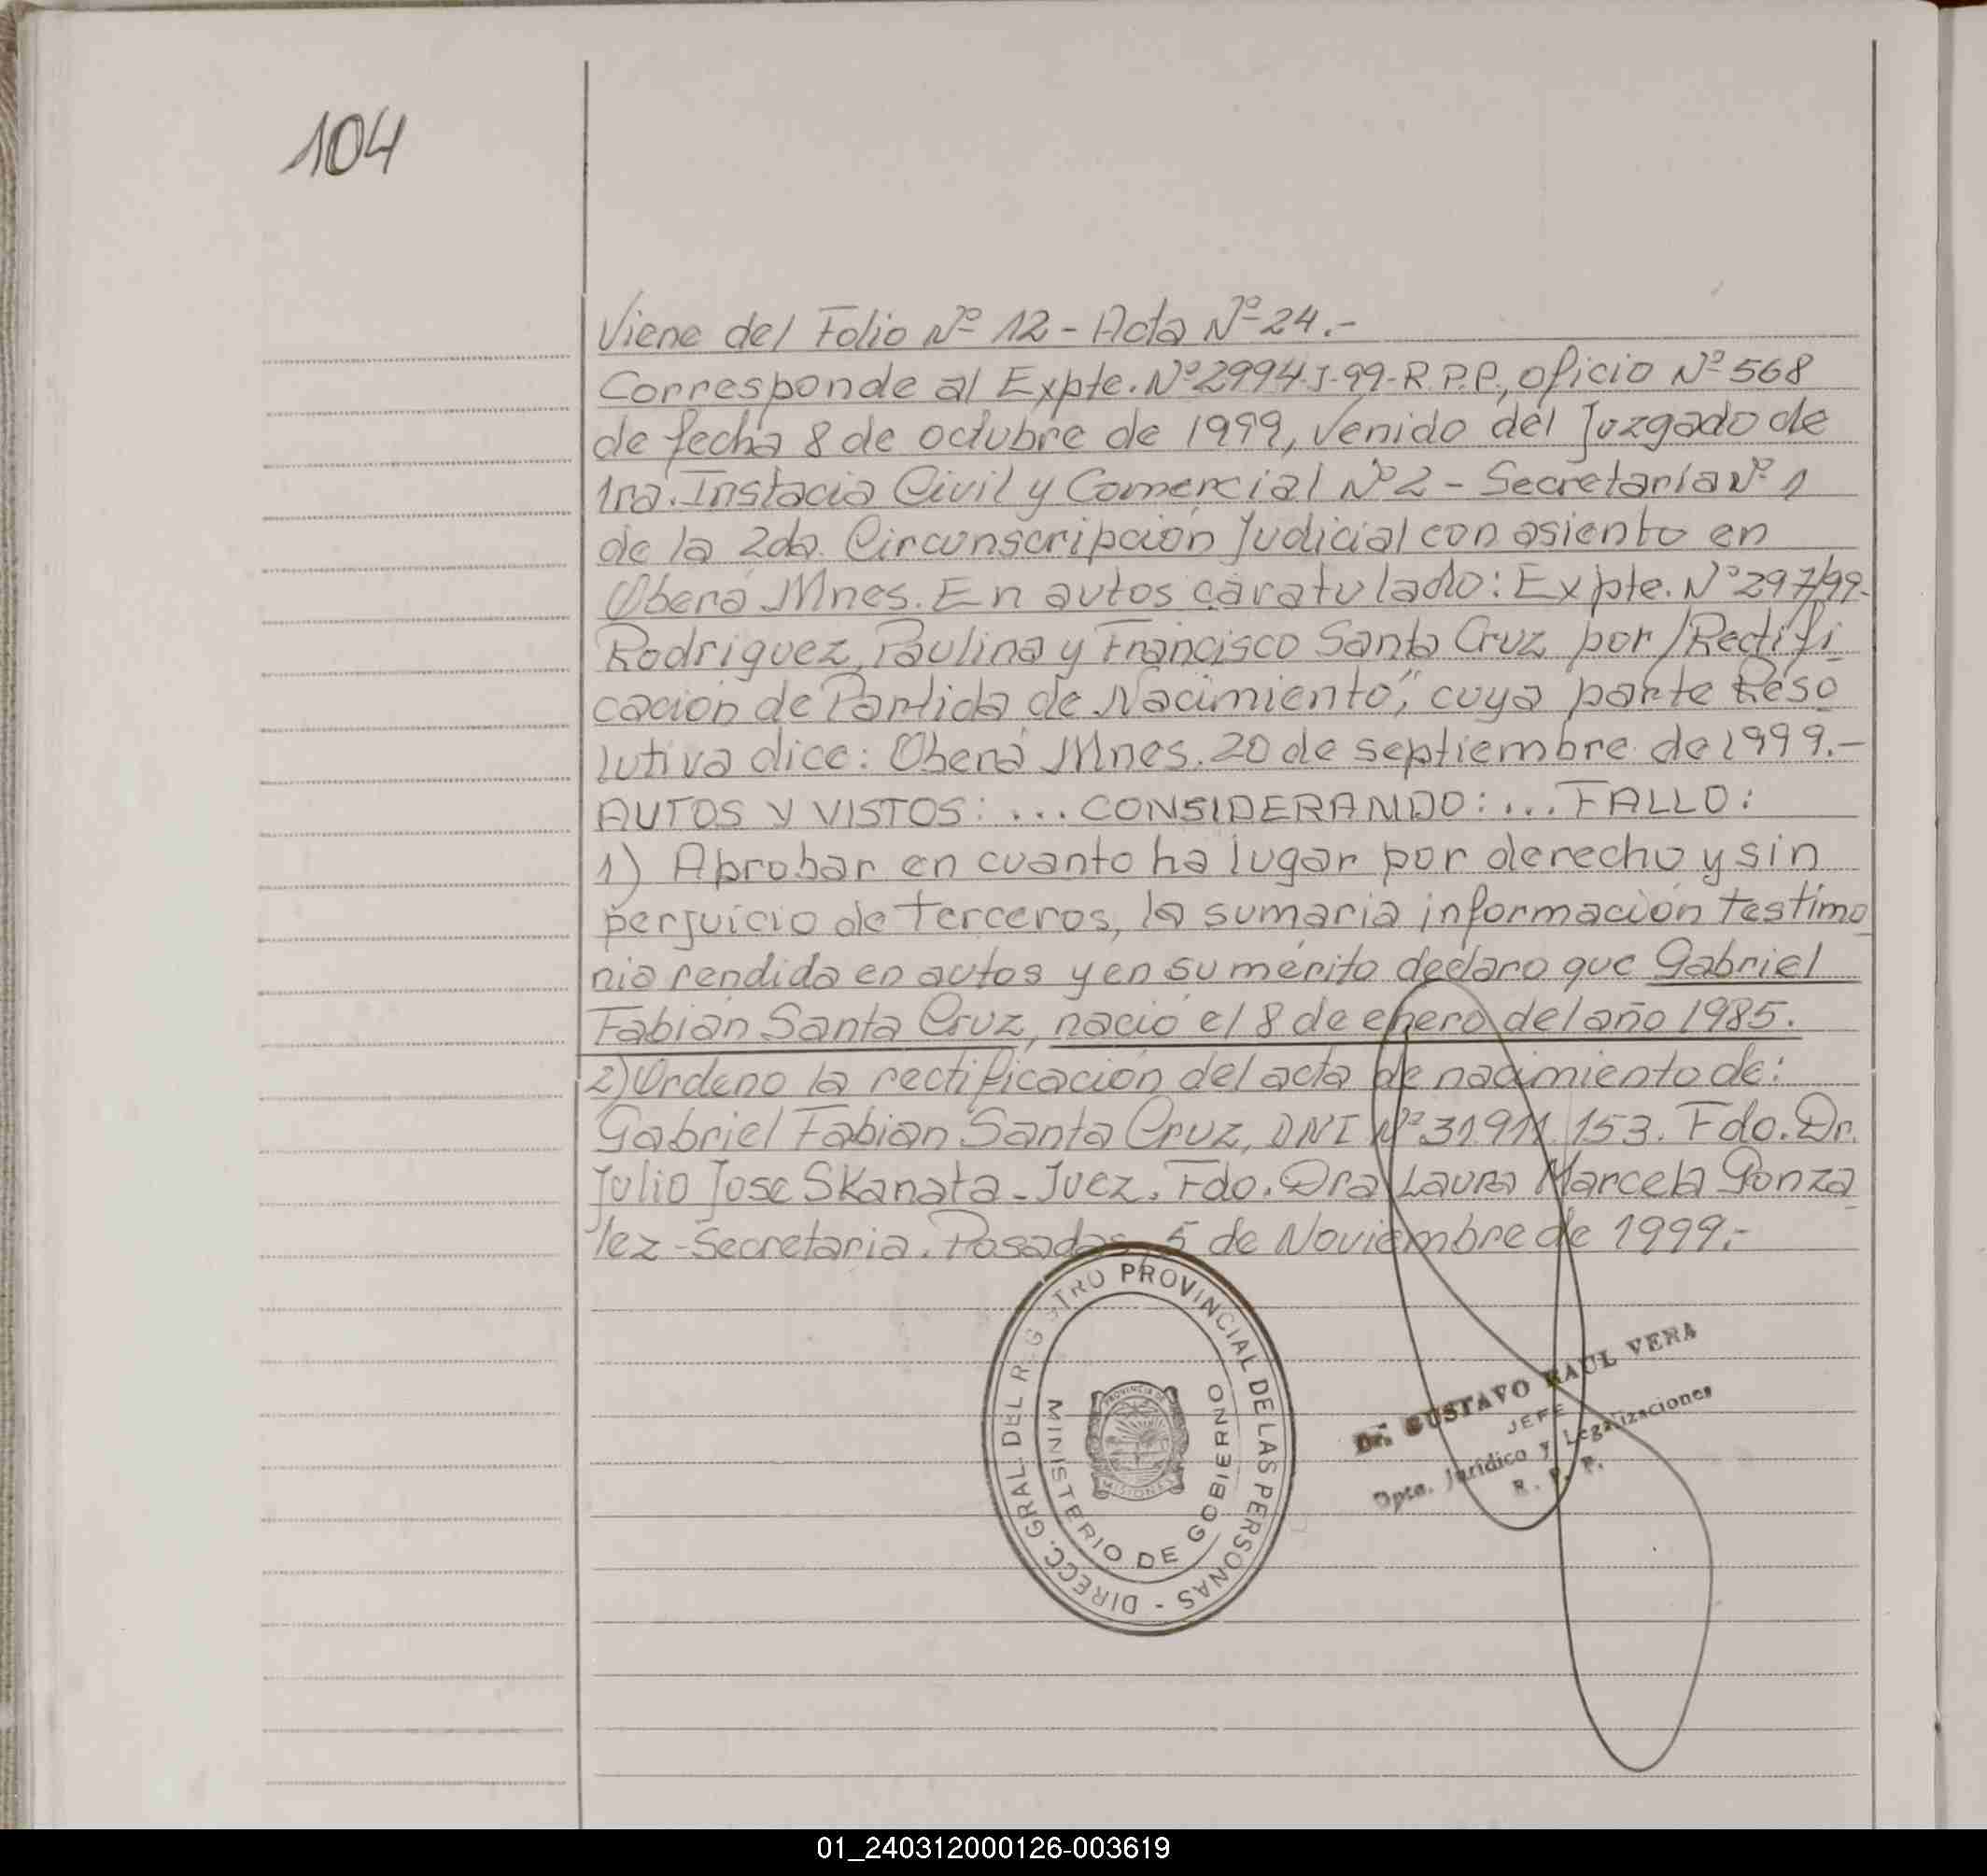 104
Viene del Folio Nº 12 - Acta Nº 24.-
Corresponde al Expte. Nº 2994-J-99-R.P.P., oficio Nº 568
de fecha 8 de octubre de 1999, venido del Juzgado de
1ra. Instacia Civil y Comercial Nº 2 - Secretaría Nº 1
de la 2da. Circunscripción Judicial con asiento en
Oberá Mnes. En autos caratulado: Expte. Nº 297/99-
Rodriguez, Paulina y Francisco Santa Cruz por/Rectifi
cación de Partida de Nacimiento", cuya parte Reso
lutiva dice: Oberá Mnes. 20 de septiembre de 1999.-
AUTOS Y VISTOS: ... CONSIDERANDO: ... FALLO:
1) Aprobar en cuanto ha lugar por derecho y sin
perjuicio de terceros, la sumaria información testimo
nia rendida en autos y en su mérito declaro que Gabriel
Fabián Santa Cruz, nació el 8 de enero del año 1985.
2) Ordeno la rectificación del acta de nacimiento de:
Gabriel Fabian Santa Cruz, DNI Nº 31.911.153. Fdo. Dr.
Julio Jose Skanata - Juez. Fdo. Dra Laura Marcela Gonza
lez - Secretaria. Posadas, 5 de Noviembre de 1999.-
DIRECC. GRAL. DEL REGISTRO PROVINCIAL DE LAS PERSONAS -
MINISTERIO DE GOBIERNO
PROVINCIA DE
MISIONES
Dr. GUSTAVO RAUL VERA
JEFE
Dpto. Jurídico y Legalizaciones
R. P. P.
01_240312000126-003619